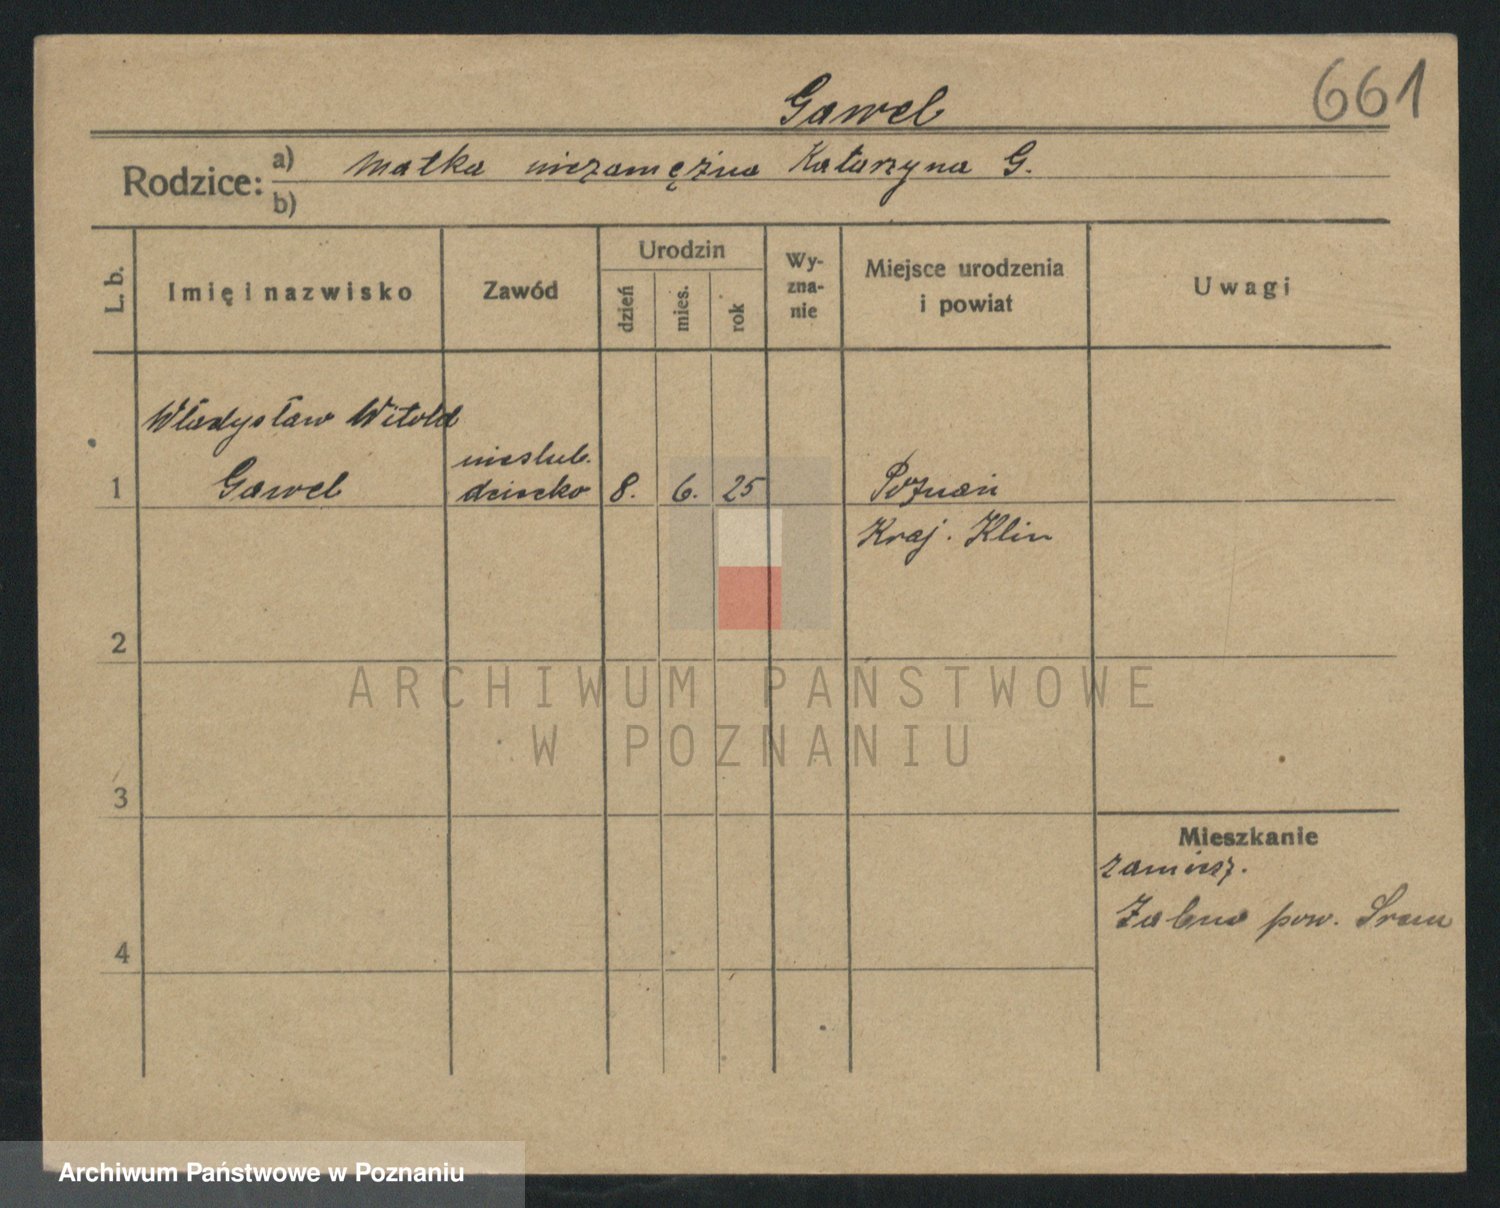 661
Gawel
Rodzice: a) Matka niezamężna Katarzyna G.
b)
L. b. Imię i nazwisko Zawód Urodzin dzień mies. rok Wy-zna-nie Miejsce urodzenia i powiat Uwagi
Władysław Witold
nieslub.
1 Gawel dziecko 8. 6. 25 Poznań
Kraj. Klin
2
ARCHIWUM PAŃSTWOWE
W POZNANIU
3
Mieszkanie
zamiesz.
pow. Srem
4
Archiwum Państwowe w Poznaniu